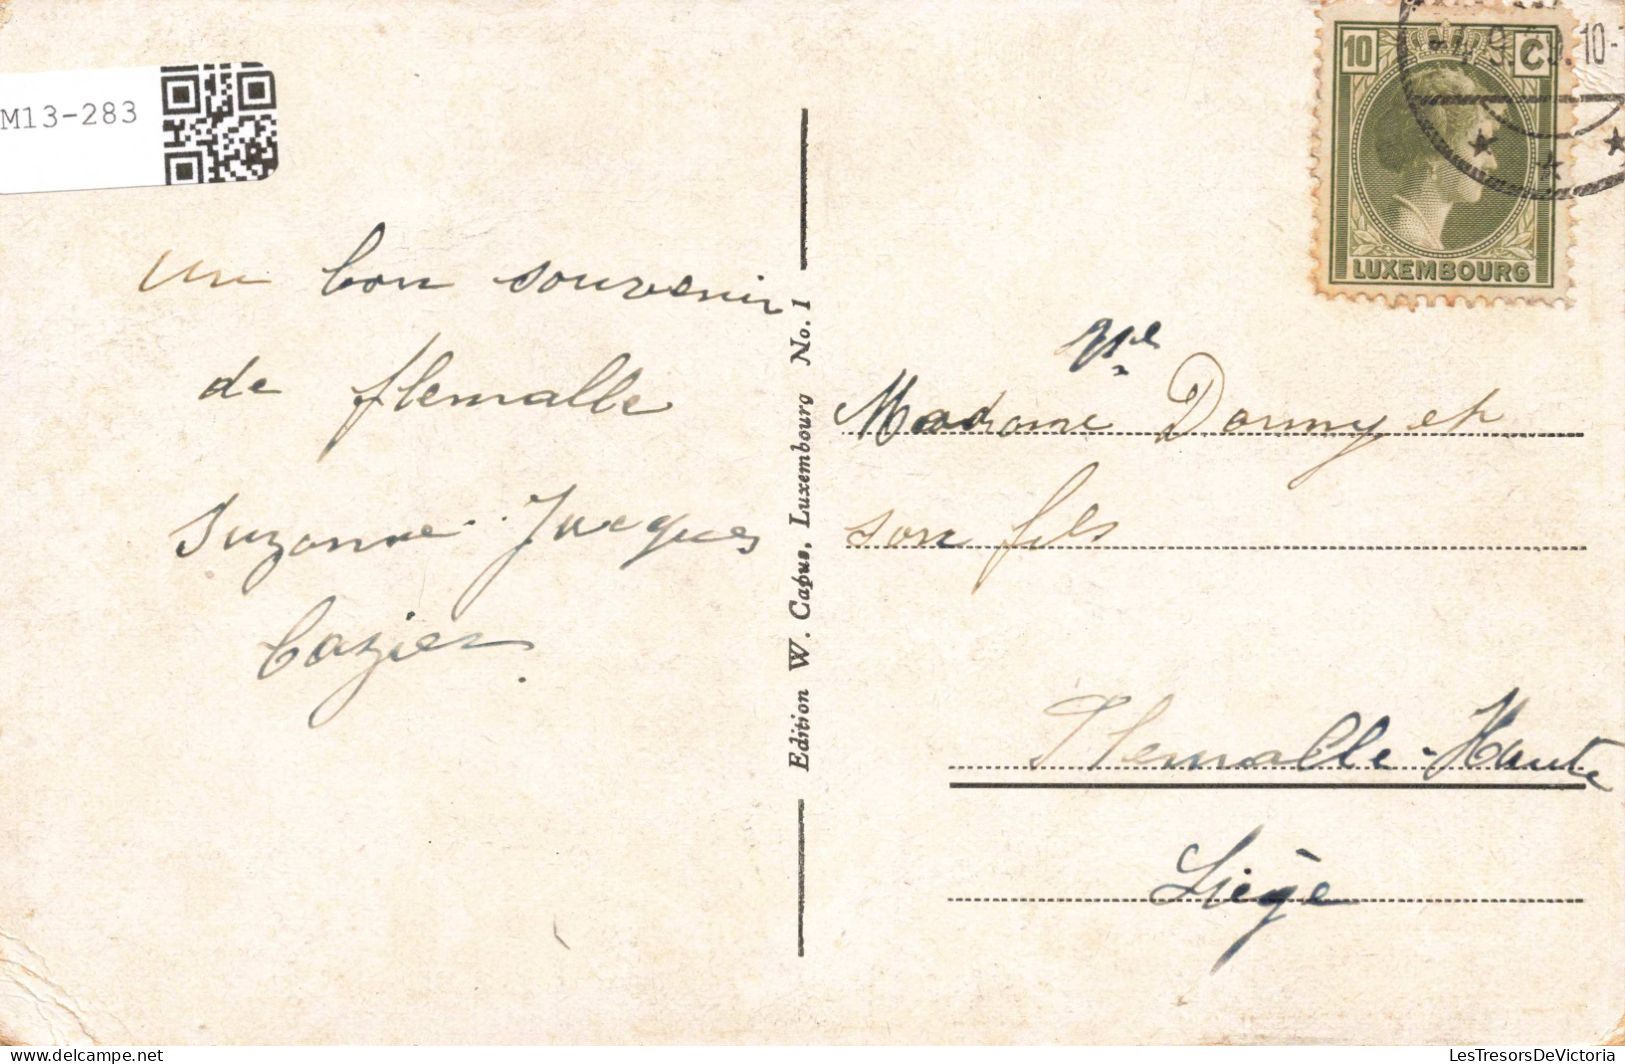 M13-283
10 C
9. 10-
LUXEMBOURG
un bon souvenir
de flemalle
Suzanne Jacques
Cazier.
Edition W. Capus, Luxembourg No. 1
Madame Dormy et
son fils
Flemalle-Haute
Liège
LesTresorsDeVictoria